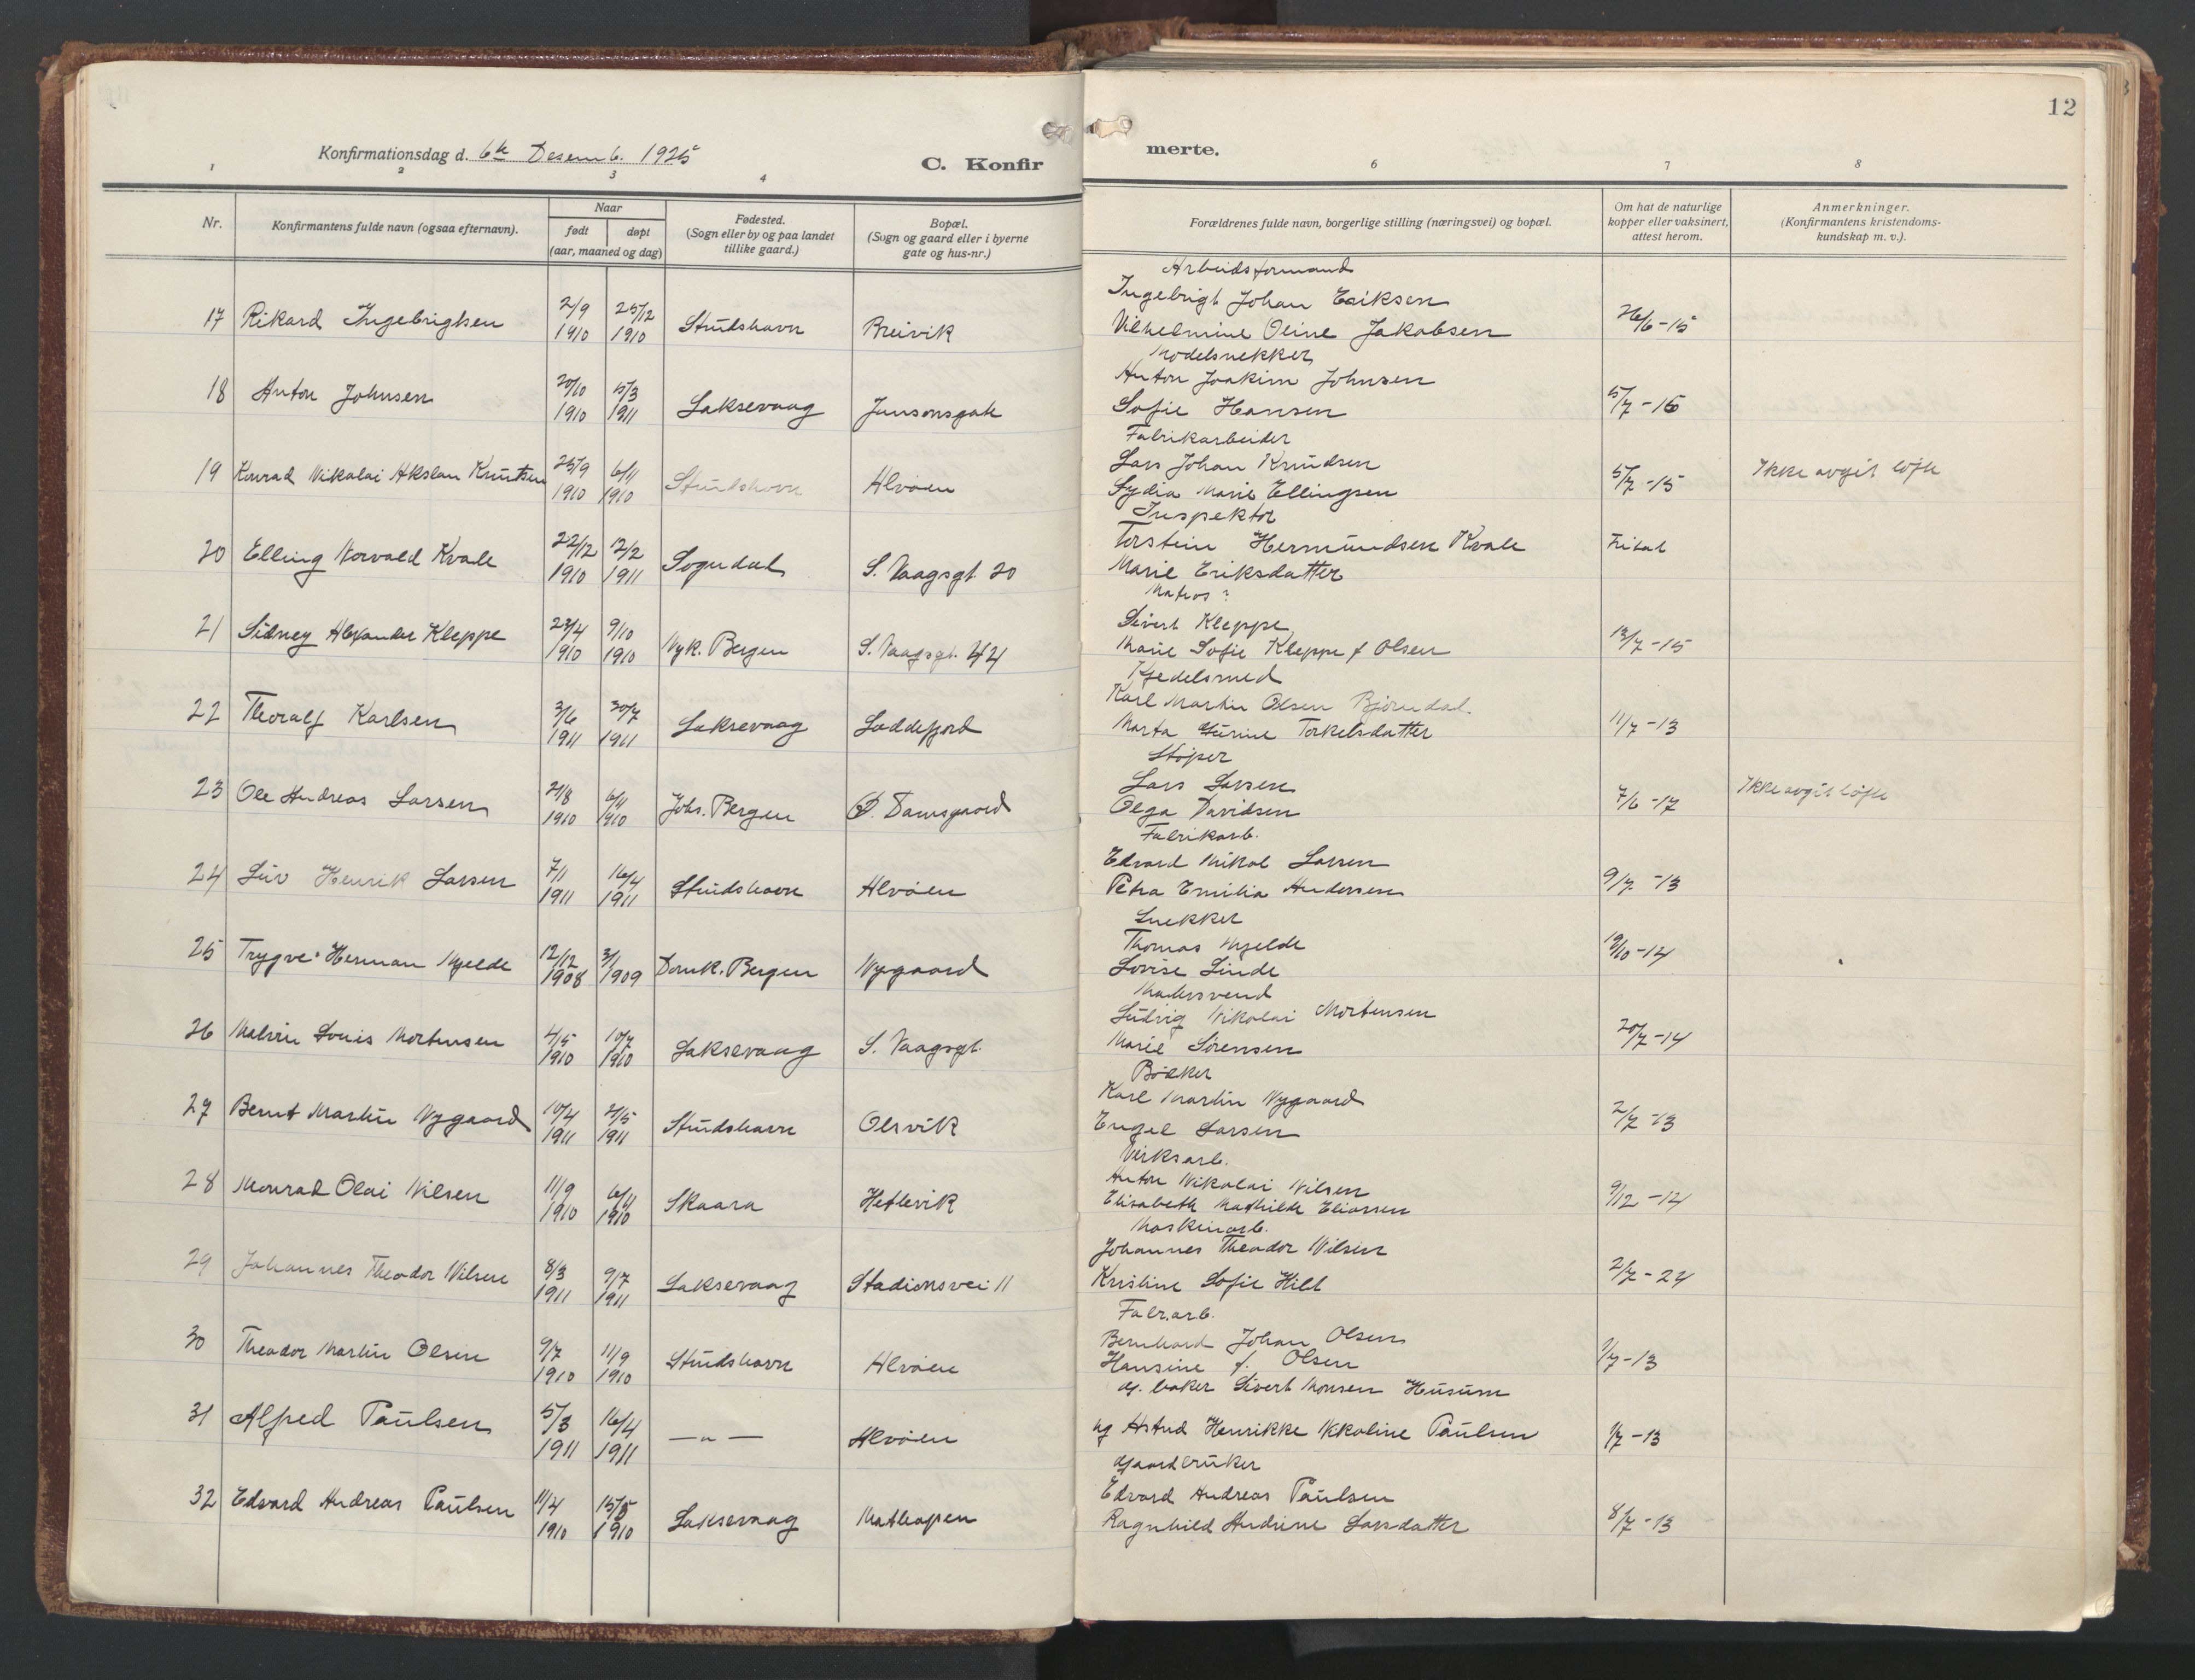 12
Konfirmationsdag d. 6te Desemb. 1925
C. Konfir
merte.
1 2 3 4 6 7 8
Nr.
Konfirmantens fulde navn (ogsaa efternavn).
Naar
født døpt
(aar, maaned og dag)
Fødested.
(Sogn eller by og paa landet
tillike gaard.)
Bopæl.
(Sogn og gaard eller i byerne
gate og hus-nr.)
Forældrenes fulde navn, borgerlige stilling (næringsvei) og bopæl.
Om hat de naturlige
kopper eller vaksinert,
attest herom.
Anmerkninger.
(Konfirmantens kristendoms-
kundskap m. v.).
Arbeidsformand
Ingebrigt Johan Eriksen
17 Rikard Ingebrigtsen 2/9 1910 25/12 1910 Studshavn Breivik Vilhelmine Oline Jakobsen 26/6-15
Modelsnekker
Anton Joakim Johnsen
18 Anton Johnsen 20/10 1910 5/3 1911 Laksevaag Jansonsgate Sofie Hansen 5/7-16
Fabrikarbeider
Lars Johan Knudsen
19 Konrad Nikolai Akslau Knutsen 25/9 1910 6/11 1910 Studshavn Alvøen Lydia Marie Ellingsen 5/7-15 Ikke avgit løfte
Inspektør
Torstein Hermundsen Kvale
20 Elling Norvald Kvale 22/12 1910 12/2 1911 Sogndal S. Vaagsgt. 20 Marie Eriksdatter
Matros?
Sivert Kleppe
21 Sidney Alexander Kleppe 23/4 1910 9/10 1910 Nyk. Bergen S. Vaagsgt. 44 Marie Sofie Kleppe f Olsen 13/7-15
Kjedelsmed
Karl Martin Olsen Bjørndal.
22 Thoralf Karlsen 3/6 1911 30/7 1911 Laksevaag Loddefjord Marta Gurine Torkelsdatter 11/7-13
Støper
Lars Larsen
23 Ole Andreas Larsen 21/8 1910 6/11 1910 Johs. Bergen Damsgaard Olga Davidsen 7/6-17 Ikke avgit løfte
Fabrikarb.
Edvard Mikal Larsen
24 Leiv Henrik Larsen 7/1 1911 16/4 1911 Studshavn Alvøen Petra Emilia Andersen 9/7-13
Snekker
Thomas Mjelde
25 Trygve Herman Mjelde 12/12 1908 3/1 1909 Domk. Bergen Nygaard Lovise Linde 19/10-14
Malersvend
Ludvig Nikolai Mortensen
26 Malvin Louis Mortensen 4/5 1910 10/7 1910 Laksevaag S. Vaagsgt. Marie Sørensen 20/7-14
Bøkker
Karl Martin Nygaard
27 Bernt Martin Nygaard 10/4 1911 21/5 1911 Studshavn Olsvik Engel Larsen 2/7-13
Verksarb.
Anton Nikolai Nilsen
28 Monrad Olai Nilsen 11/9 1910 6/11 1910 Skaara Hetlevik Elisabeth Mathilde Eliassen 9/12-14
Maskinarb.
Johannes Theodor Nilsen
29 Johannes Theodor Nilsen 8/3 1911 9/7 1911 Laksevaag Stadionsvei 11 Kristine Sofie Hilt 2/7-24
Fabr.arb.
Bernhard Johan Olsen
30 Theodor Martin Olsen 9/7 1910 11/9 1910 Studshavn Alvøen Hansine f. Olsen 1/7-13
Gf. baker Sivert Monsen Husum
31 Alfred Paulsen 5/3 1911 16/4 1911 — " — Alvøen og Astrid Henrikke Nikoline Paulsen 1/7-13
Gaardbruker
Edvard Andreas Paulsen
32 Edvard Andreas Paulsen 11/4 1910 15/5 1910 Laksevaag Mathopen Ragnhild Andrine Larsdatter 8/7-13